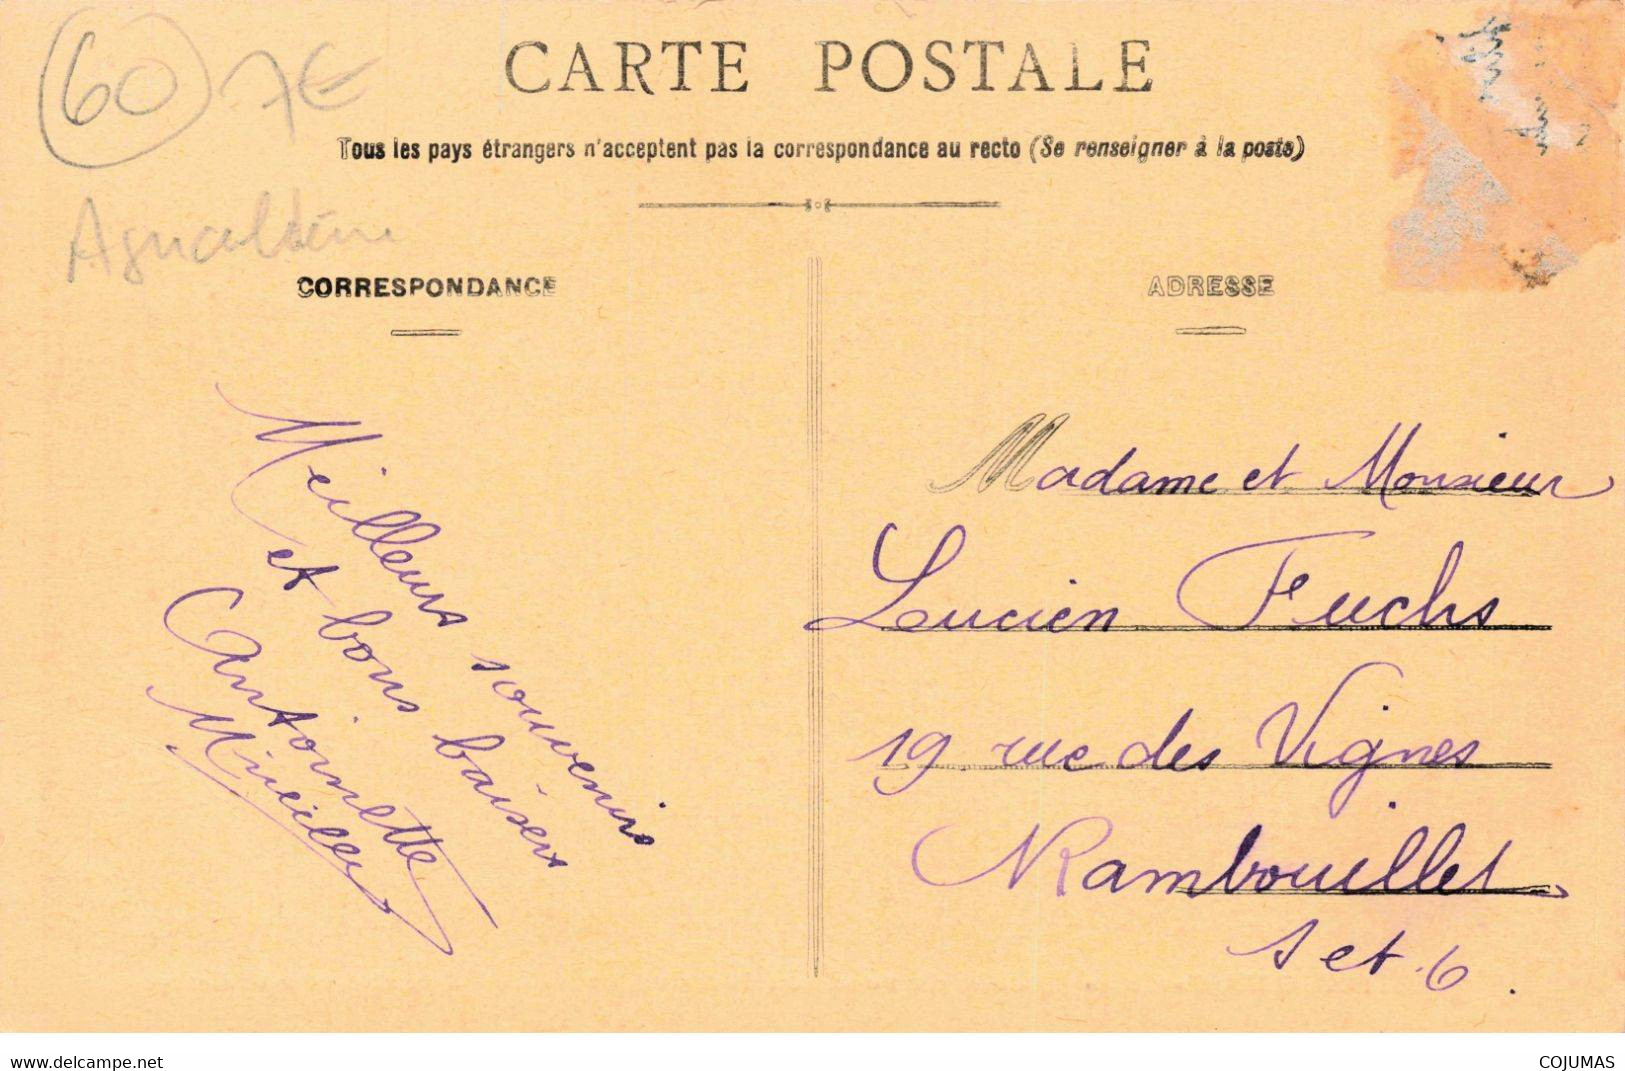 60 7€
CARTE POSTALE
Tous les pays étrangers n'acceptent pas la correspondance au recto (Se renseigner à la poste)
Agriculture
CORRESPONDANCE
Meilleurs souvenirs
et bons baisers
Antoinette
Mireille
ADRESSE
Madame et Monsieur
Lucien Fuchs
19 rue des Vignes
Rambouillet
S et 6
www.delcampe.net
COJUMAS